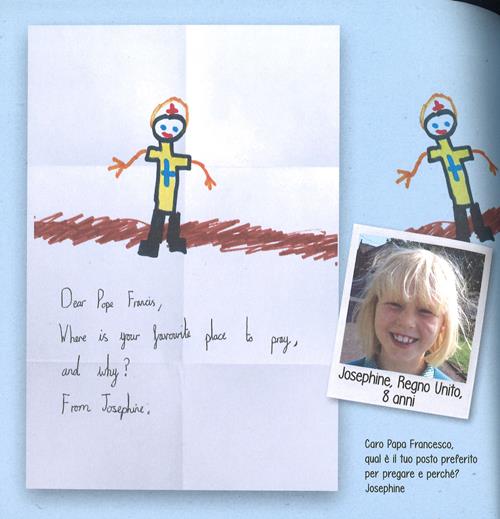 Dear Pope Francis,
Where is your favourite place to pray,
and why?
From Josephine.
Josephine, Regno Unito,
8 anni
Caro Papa Francesco,
qual è il tuo posto preferito
per pregare e perché?
Josephine